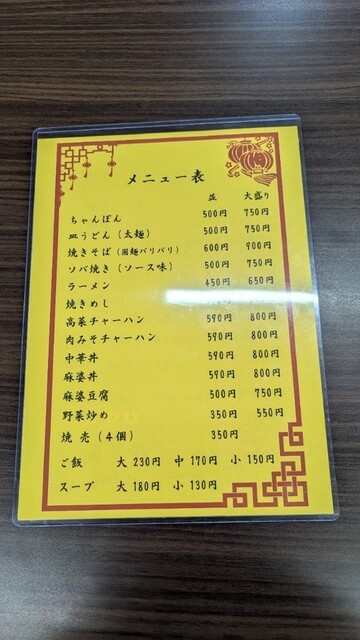 メニュー表
並 大盛り
ちゃんぽん 500円 750円
皿うどん（太麺） 500円 750円
焼きそば（固麺バリバリ） 600円 900円
ソバ焼き（ソース味） 500円 750円
ラーメン 450円 650円
焼きめし
高菜チャーハン 590円 800円
肉みそチャーハン 590円 800円
中華丼 590円 800円
麻婆丼 590円 800円
麻婆豆腐 500円 750円
野菜炒め 350円 550円
焼売（4個） 350円
ご飯 大 230円 中 170円 小 150円
スープ 大 180円 小 130円